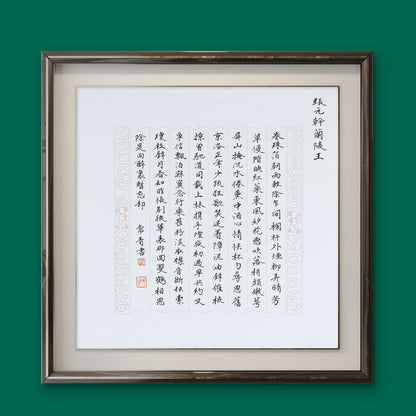 張元幹蘭陵王
卷珠箔朝雨輕陰乍閣欄杆外煙柳弄晴芳
草侵階映紅藥東風妒花惡吹落梢頭嫩萼
屏山掩沉水倦熏中酒心情怯杯勺尋思舊
京洛正年少疏狂歌笑迷著障泥油壁催梳
掠曾馳道同載上林攜手燈夜初過早共約又
爭信飄泊寂寞念行樂甚粉淡衣襟音斷弦索
瓊枝璧月春如昨悵別後華表那回雙鶴相思
除是向醉裏暫忘卻 常青書